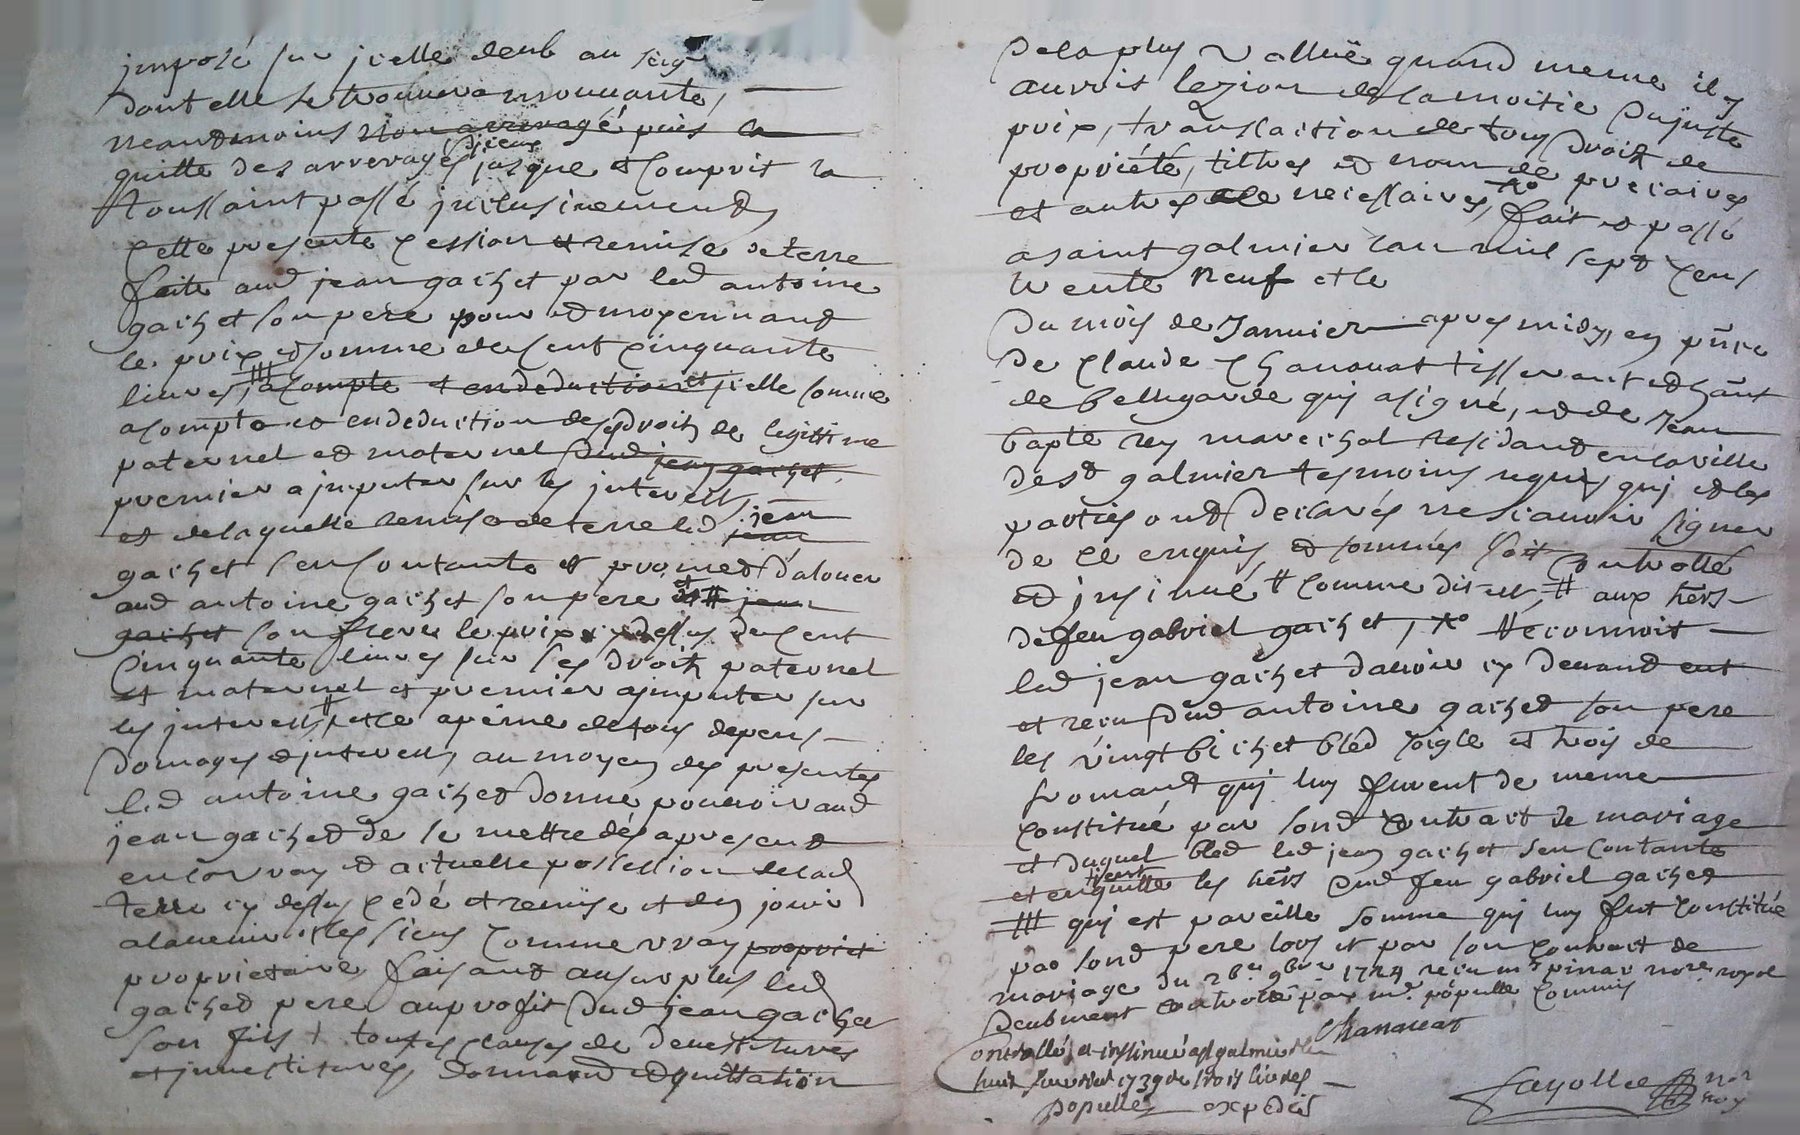 imposé sur icelle deub au seigr
dont elle se trouvera mouvante,
neandmoins non arreragé puis la
quitte des arrerages d'iceux jusque et compris la
toussaint passé inclusivement,
cette presente cession et remise de terre
faite aud jean gachet par led antoine
gachet son pere pour et moyennant
le prix et somme de cent cinquante
livres, # a compte et en deduction et icelle somme
a compte et en deduction de ses droits de legittime
paternel et maternel dud jean gachet,
premier a imputer sur les interests,
et de laquelle remise de terre led jean jean
gachet sen contante et promet d'alouer
aud antoine gachet son pere et # jean
gachet son frere le prix cy dessus de cent
cinquante livres sur ses droits paternel
et maternel et premier a imputer sur
les interests, # et ce a peine de tous depens
domages et interests, au moyen des presentes
led antoine gachet donne pouvoir aud
jean gachet de se mettre dés a present
en la vray et actuelle possession de lad
terre cy dessus cedé et remise et den jouir
a lavenir et les siens comme vray propriet
proprietaire faisant au surplus led
gachet pere au profit dud jean gachet
son fils toutes clauses de devestitures
et investitures, donnant et quittation
de la plus vallue quand meme il y
auroit lezion de la moitié du juste
prix, translaction de tous droits de
proprieté, tiltres et nom de precaires
et autres de necessaires, fait et passé
a saint galmier lan mil sept cens
trente neuf et le
du mois de Janvier apres midy, en pnce
de claude Chanavat tisserant et hant
de bellegarde qui a signé, et de Jean
bapte rey marechal residant en la ville
de st galmier tesmoins requis qui et les
parties ont declarés ne scavoir signer
de ce enquis et sommés soit controllé
et insinué, # comme dit est # aux hers
de feu gabriel gachet, reconnoit
led jean gachet davoir cy devant eut
et recu dud antoine gachet son pere
les vingt bichet bled soigle et trois de
fromant qui luy furent de meme
constitué par sond contract de mariage
et duquel bled led jean gachet sen contante
et en quitte tient les hers dud feu gabriel gachet
# qui est pareille somme qui luy fut constitué
par sond pere lors et par son contract de
mariage du 9bre 1724 recu me pinay nore royal
deubment controllé par mr. populle commis
Chanavat
Controllé et insinué a st galmier le
huit Janvier 1739 recu trois livres
populle expedié
fayolle nore
roy